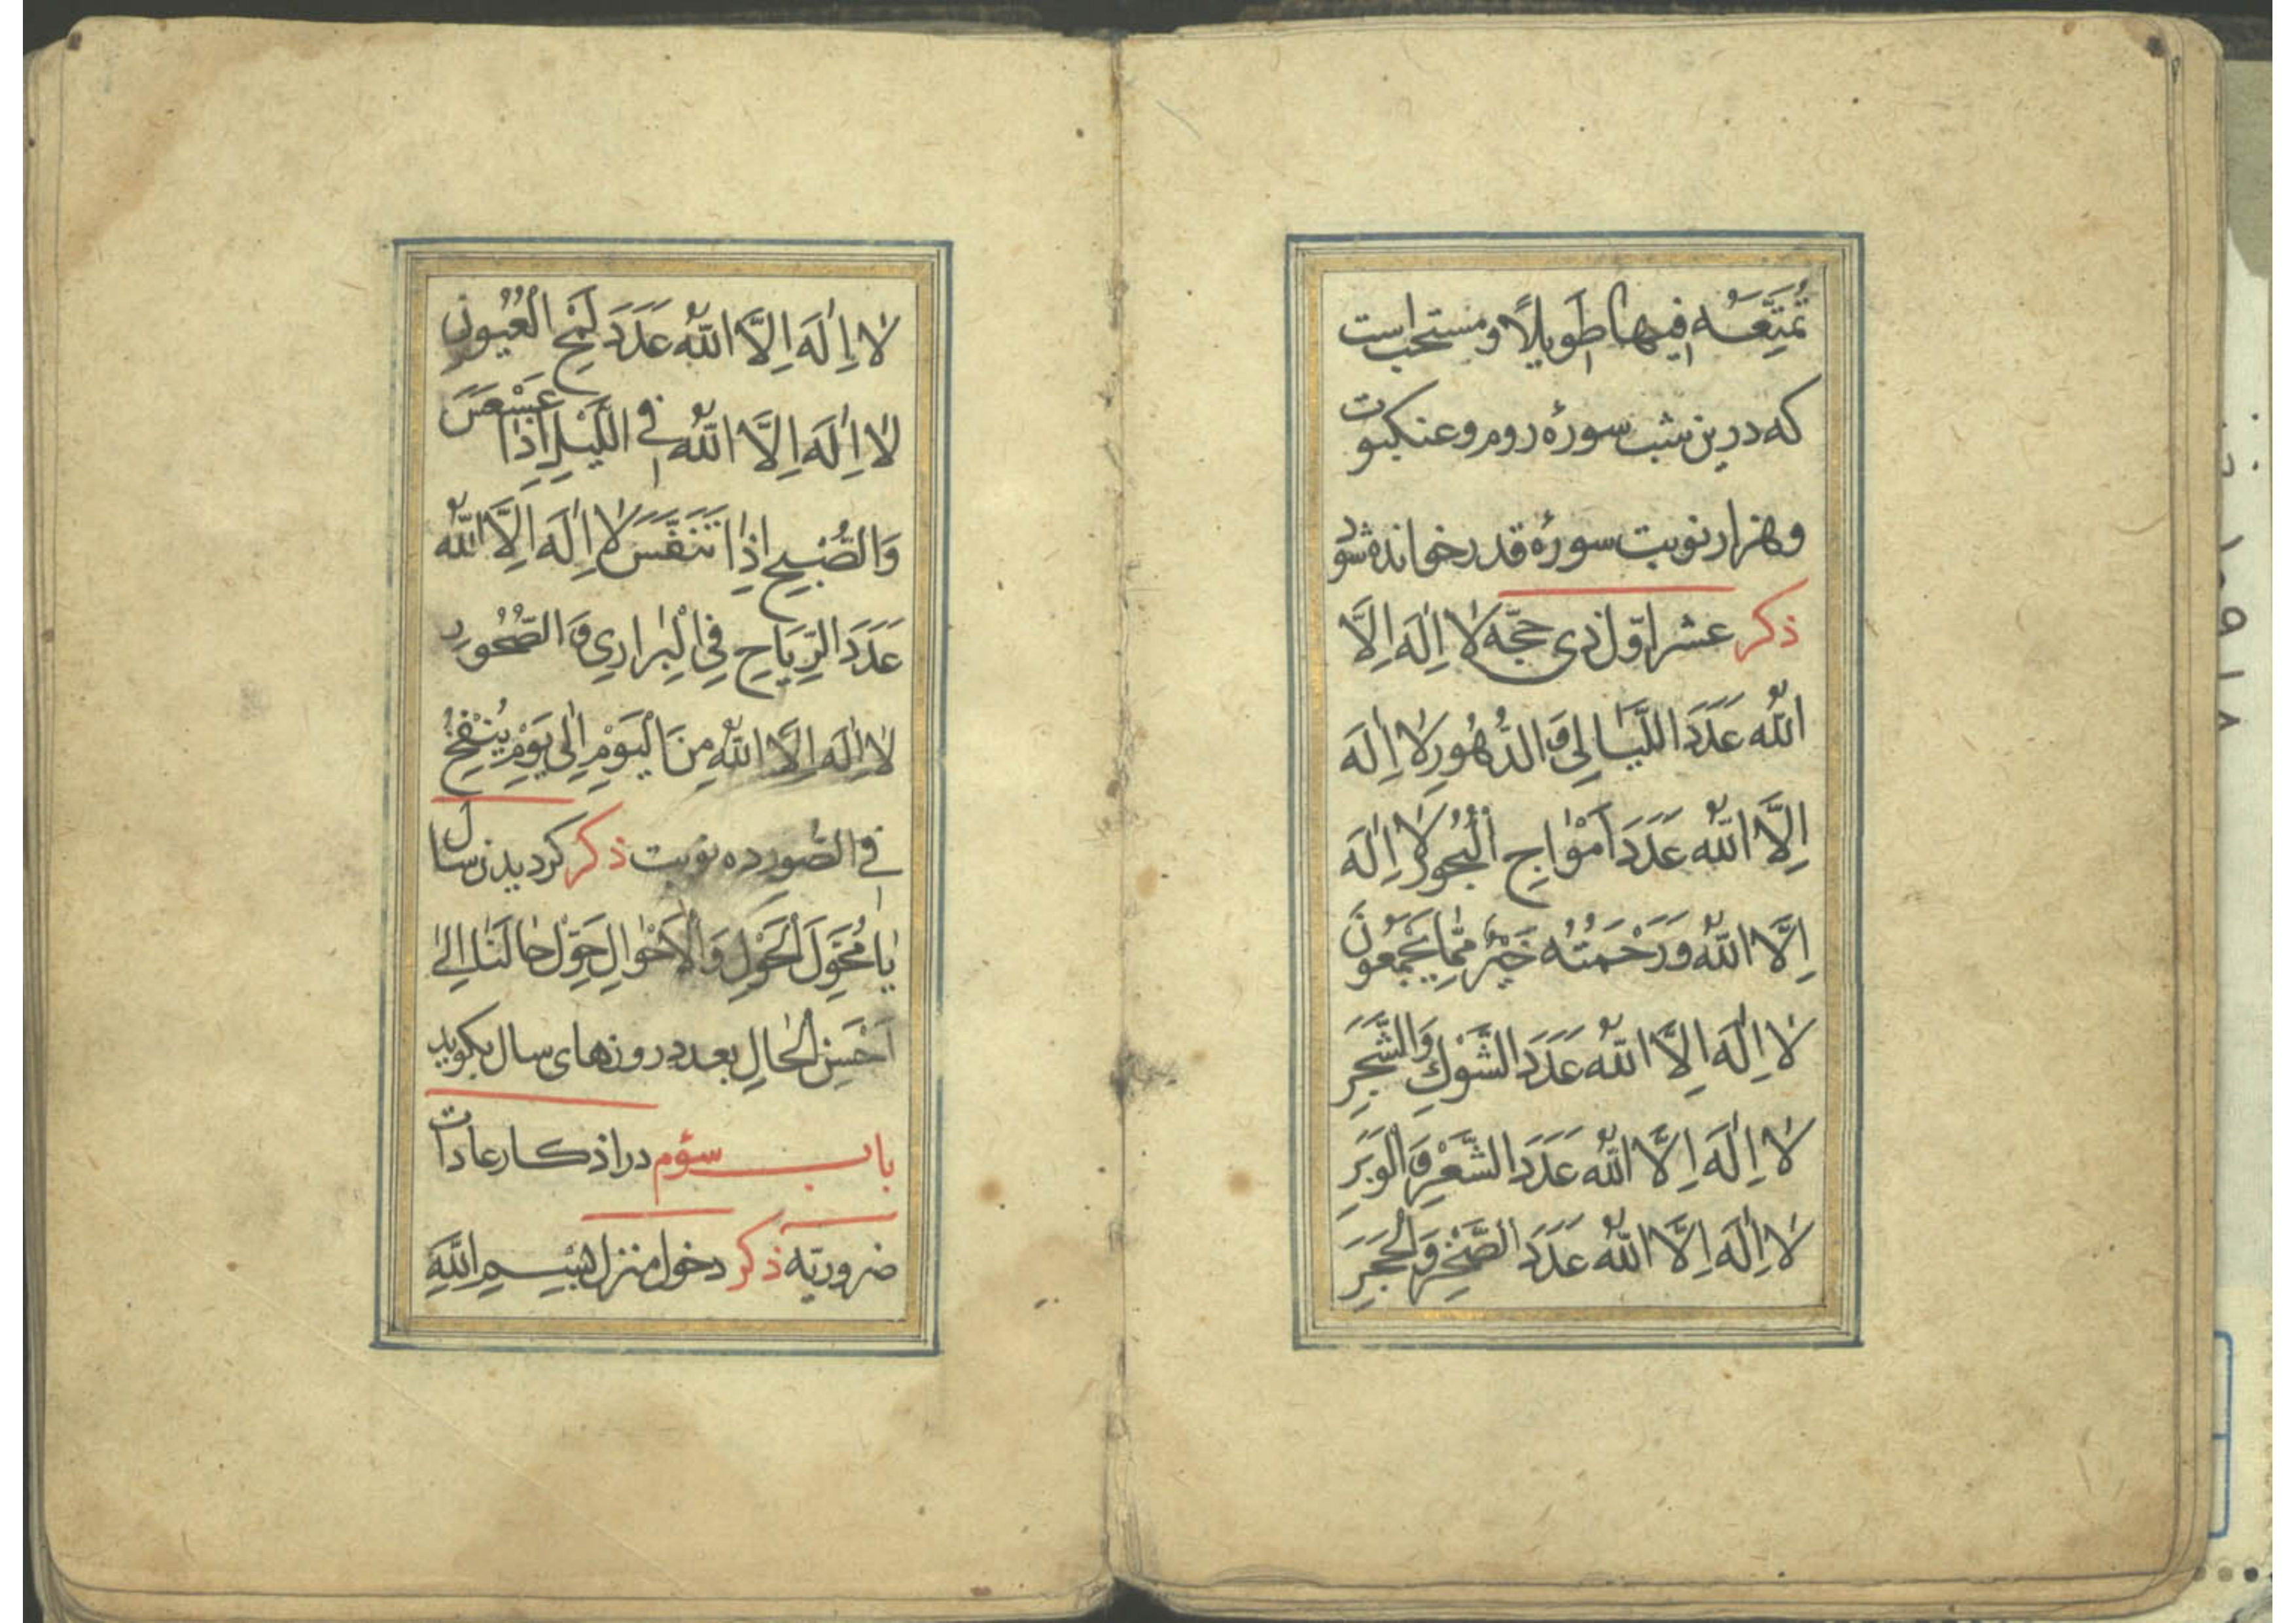 تُمَتِّعَهُ فِيهَا طَوِيلًا و مستحب است
که درین شب سورهٔ روم و عنکبوت
و هزار نوبت سورهٔ قدر خوانده شود
ذکر عشر اوّل ذی حجّه لا اِلٰهَ اِلَّا
اللّٰهُ عَدَدَ اللَّيَالِي وَ الدُّهُورِ لا اِلٰهَ
اِلَّا اللّٰهُ عَدَدَ اَمْوَاجِ الْبُحُورِ لا اِلٰهَ
اِلَّا اللّٰهُ وَ رَحْمَتُهُ خَيْرٌ مِمَّا يَجْمَعُونَ
لا اِلٰهَ اِلَّا اللّٰهُ عَدَدَ الشَّوْكِ وَالشَّجَرِ
لا اِلٰهَ اِلَّا اللّٰهُ عَدَدَ الشَّعْرِ وَ الْوَبَرِ
لا اِلٰهَ اِلَّا اللّٰهُ عَدَدَ الصَّخْرِ وَ الْحَجَرِ
لا اِلٰهَ اِلَّا اللّٰهُ عَدَدَ لَمْحِ الْعُيُونِ
لا اِلٰهَ اِلَّا اللّٰهُ فِي اللَّيْلِ اِذَا عَسْعَسَ
وَالصُّبْحِ اِذَا تَنَفَّسَ لا اِلٰهَ اِلَّا اللّٰهُ
عَدَدَ الرِّيَاحِ فِي الْبَرَارِي وَ الصُّخُورِ
لا اِلٰهَ اِلَّا اللّٰهُ مِنَ الْيَوْمِ اِلٰى يَوْمِ يُنْفَخُ
فِي الصُّورِ ده نوبت ذکر کردیدن سال
یٰا مُحَوِّلَ الْحَوْلِ وَ الْاَحْوٰالِ حَوِّلْ حٰالَنٰا اِلیٰ
اَحْسَنِ الْحٰالِ بعدد روزهای سال بکوید
باب سوّم در اذکار عادات
ضروریّه ذکر دخول منزل بِسْمِ اللّٰهِ